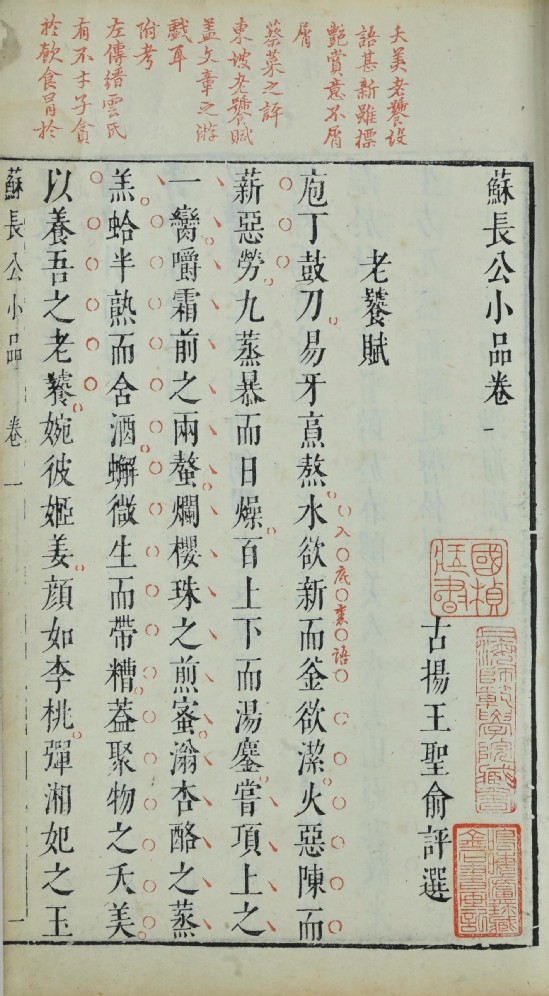 夭美老饕設
語甚新雖標
艷賞意不屑
屑
蔡菜之評
東坡老饕賦
蓋文章之游
戲耳
附考
左傳縉雲氏
有不才子貪
於飲食冒於
蘇長公小品卷一
古揚王聖俞評選
上海師範學院藏書
老饕賦
庖丁鼓刀易牙亯熬水欲新而釜欲潔火惡陳而
入底裏語
薪惡勞九蒸暴而日燥百上下而湯鏖嘗項上之
一臠嚼霜前之兩螯爛櫻珠之煎蜜滃杏酪之蒸
羔蛤半熟而含酒蠏微生而帶糟葢聚物之夭美
以養吾之老饕婉彼姬姜顏如李桃彈湘妃之玉
蘇長公小品 卷一 一